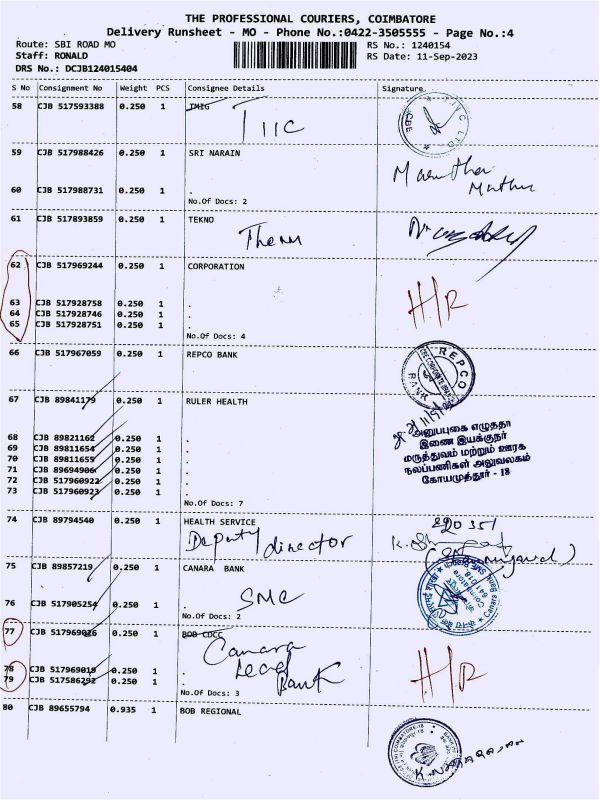 THE PROFESSIONAL COURIERS, COIMBATORE
Delivery Runsheet - MO - Phone No.:0422-3505555 - Page No.:4
Route: SBI ROAD MO
RS No.: 1240154
Staff: RONALD
RS Date: 11-Sep-2023
DRS No.: DCJB124015404
S No Consignment No Weight PCS Consignee Details Signature
58 CJB 517593388 0.250 1 TMIG
TIIC
59 CJB 517988426 0.250 1 SRI NARAIN
60 CJB 517988731 0.250 1 .
No.Of Docs: 2
61 CJB 517893859 0.250 1 TEKNO
Therm
62 CJB 517969244 0.250 1 CORPORATION
H/R
63 CJB 517928758 0.250 1 .
64 CJB 517928746 0.250 1 .
65 CJB 517928751 0.250 1 .
No.Of Docs: 4
66 CJB 517967059 0.250 1 REPCO BANK
REPCO BANK
67 CJB 89841179 0.250 1 RULER HEALTH
68 CJB 89821162 0.250 1 .
69 CJB 89811654 0.250 1 .
70 CJB 89811655 0.250 1 .
71 CJB 89694906 0.250 1 .
72 CJB 517960922 0.250 1 .
73 CJB 517960923 0.250 1 .
No.Of Docs: 7
அனுப்புகை எழுத்தர்
இணை இயக்குநர்
மருத்துவம் மற்றும் ஊரக
நலப்பணிகள் அலுவலகம்
கோயமுத்தூர் - 18
74 CJB 89794540 0.250 1 HEALTH SERVICE
220351
Deputy director
75 CJB 89857219 0.250 1 CANARA BANK
SMC
76 CJB 517905254 0.250 1 .
No.Of Docs: 2
Canara Bank
Coimbatore
641 018
77 CJB 517969026 0.250 1 BOB CDCC
Canara
Lead
Bank
H/R
78 CJB 517969019 0.250 1 .
79 CJB 517586292 0.250 1 .
No.Of Docs: 3
80 CJB 89655794 0.935 1 BOB REGIONAL